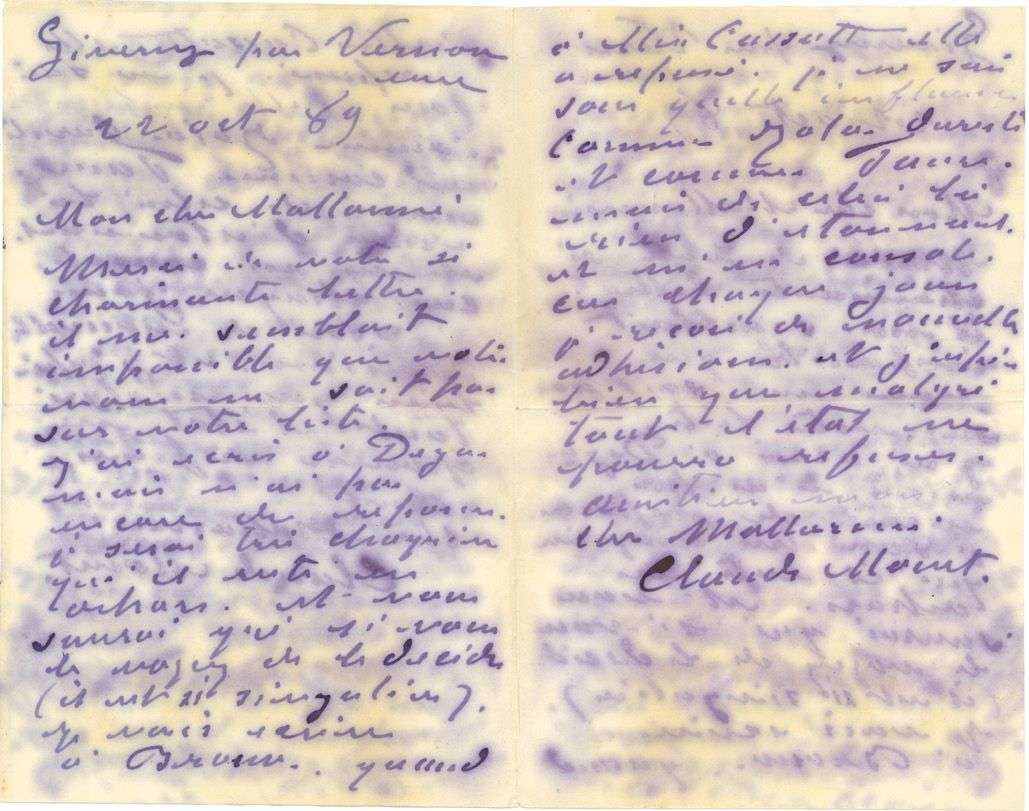 Giverny par Vernon
eure
22 oct 89
Mon cher Mallarmé
Merci de votre si
charmante lettre.
il me semblait
impossible que votre
nom ne soit pas
sur notre liste.
j'ai écris à Degas
mais n'ai pas
encore de reponse.
je serai très chagrin
qu'il reste en
dehors. et vous
saurai gré si vous
le voyez de le décider
(il est si singulier).
je vais écrire
à Brown. quand
à Miss Cassatt elle
a refusé. je ne sais
sous quelle influence
comme Zola. Duret
et comme Faure.
mais de celui là
rien d'étonnant.
et m'en console.
car chaque jour
je reçois de nouvelles
adhésions. et j'espère
bien que malgré
tout l'état ne
pourra refuser.
amitiés mon
cher Mallarmé
Claude Monet.